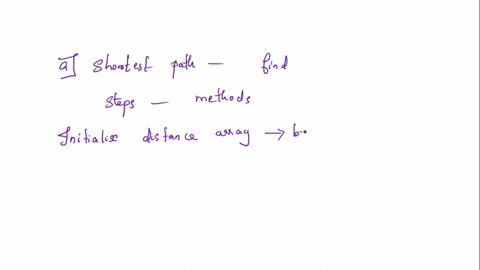 a] Shortest path — find
steps — methods
Initialise distance array → b.